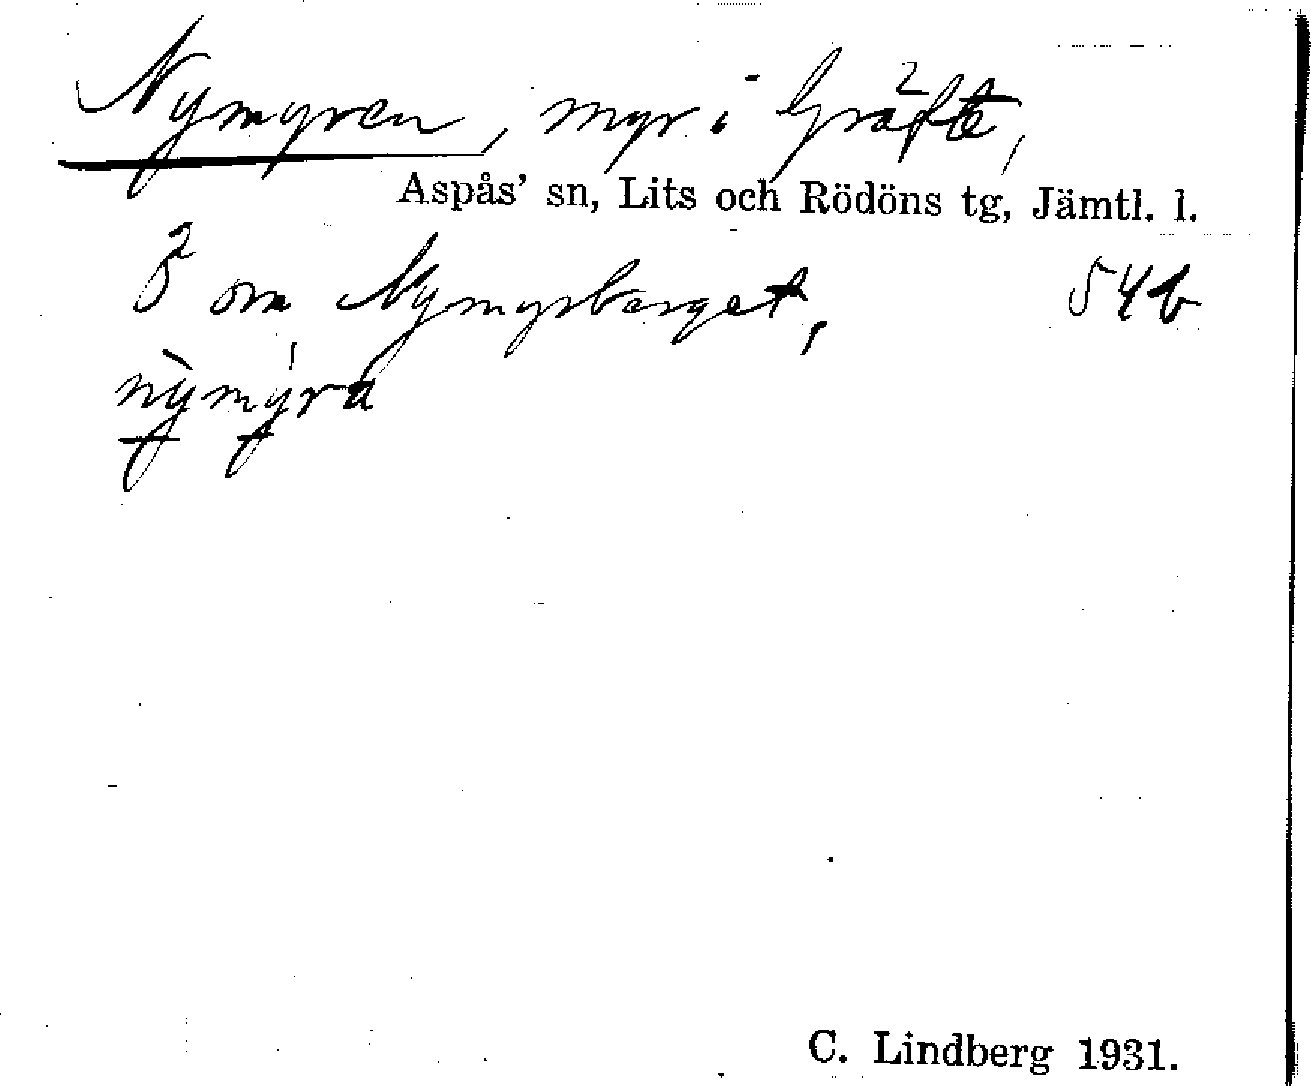 Nymyren, myr i Gräfte,
Aspås' sn, Lits och Rödöns tg, Jämtl. l.
Ö om Nymyrberget, 54b
nỳmýra
C. Lindberg 1931.